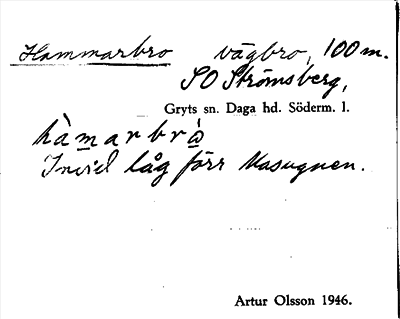 Hammarbro vägbro, 100 m.
SO Strömsberg,
Gryts sn. Daga hd. Söderm. l.
hàmarbrò
Invid låg förr Masugnen.
Artur Olsson 1946.